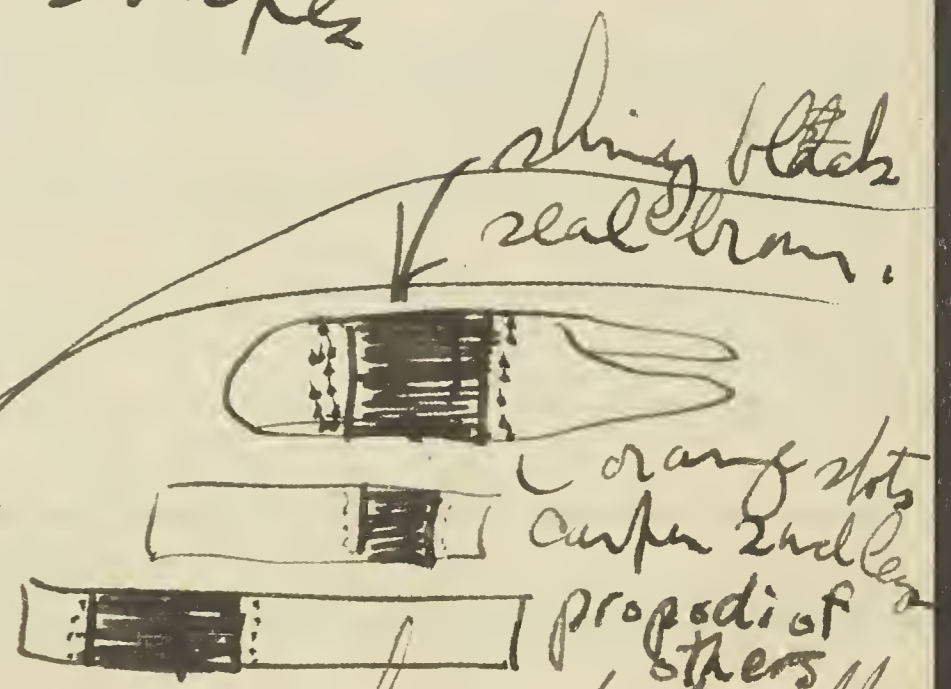 shiny black
seal brown.
orange dots
carpus 2nd leg
propodi of
others